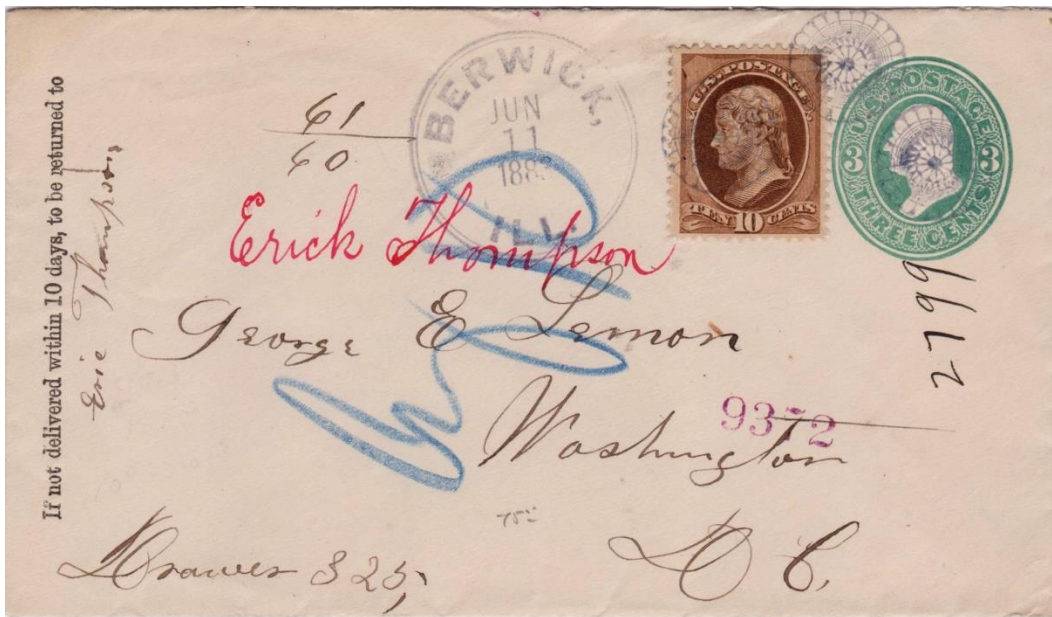 If not delivered within 10 days, to be returned to
Eric Thompson
BERWICK,
JUN
11
ILL.
61
60
U.S. POSTAGE
TEN 10 CENTS
U.S. POSTAGE
3 3
THREE CENTS
Erick Thompson
George E Lemon
2799
9372
Washington
D C.
Drawer 325,